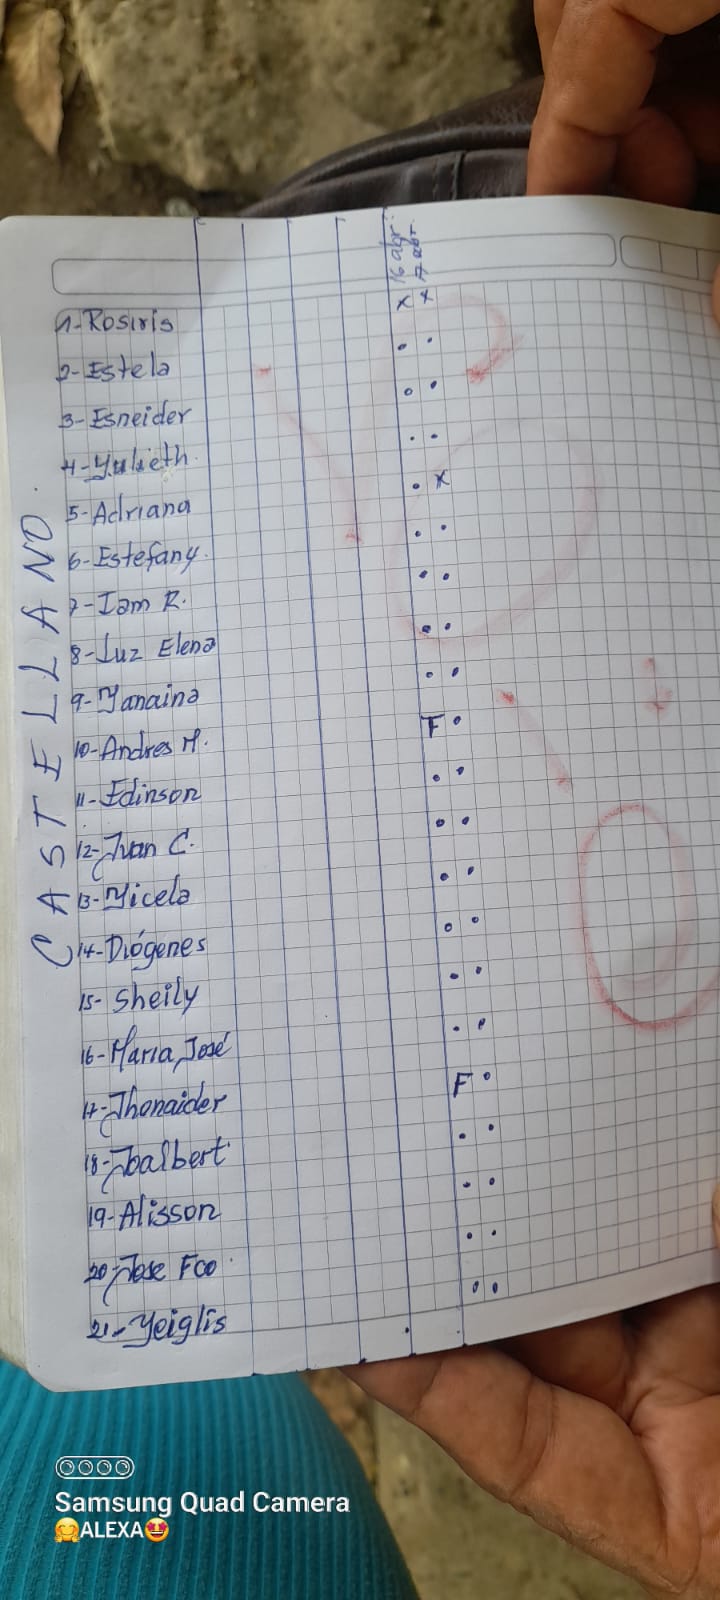 16 abr.
17 abr.
x x
1-Rosiris
2-Estela . .
3-Esneider . .
4-Yulieth. . .
5-Adriana . x
6-Estefany. . .
7-Iam R. . .
8-Luz Elena . .
9-Yanaina . .
10-Andres M. F .
11-Edinson . .
12-Juan C. . .
13-Yicela . .
14-Diógenes . .
15-Sheily . .
16-Maria José . .
17-Jhonaider F .
18-Joalbert . .
19-Alisson . .
20-Jose Fco . .
21-Yeiglis . .
CASTELLANO.
Samsung Quad Camera
🤗ALEXA🤩